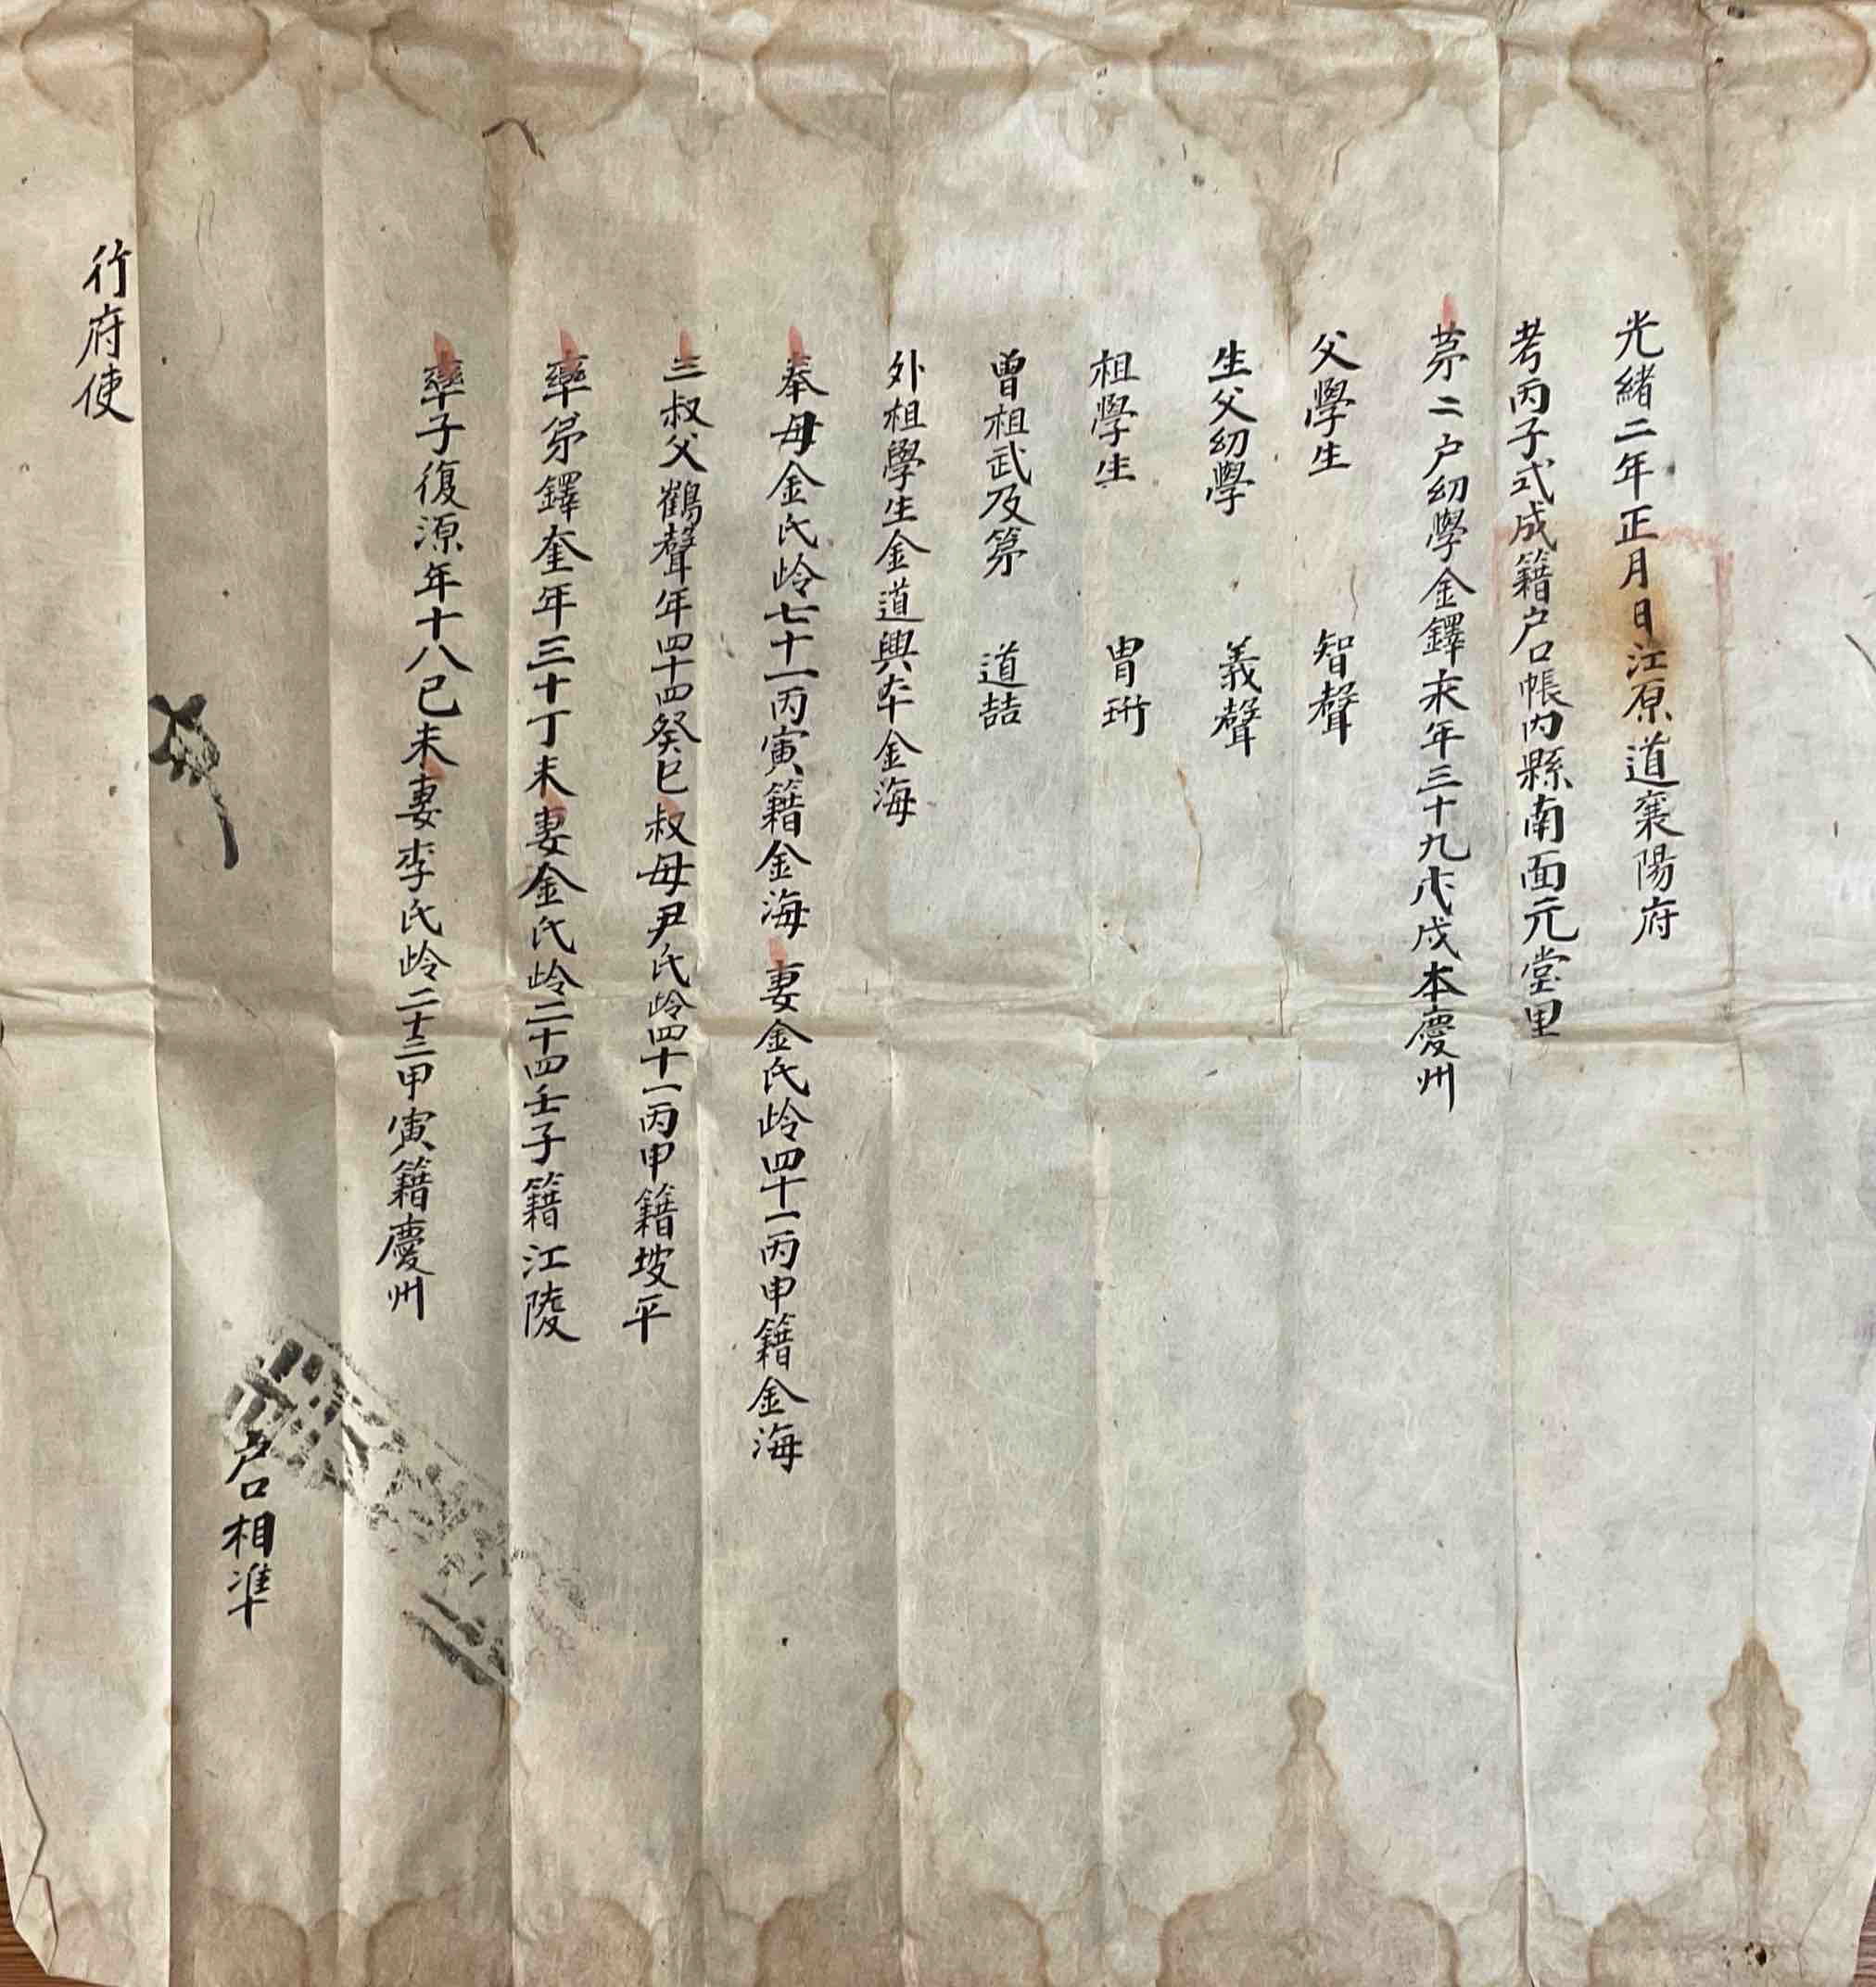 光緖二年正月日江原道襄陽府
考丙子式成籍户口帳內縣南面元堂里
苐二户幼學金鐸來年三十九戊戌本慶州
父學生 智聲
生父幼學 義聲
祖學生 胄珩
曽祖武及苐 道喆
外祖學生金道興本金海
奉母金氏岭七十一丙寅籍金海 妻金氏岭四十一丙申籍金海
三叔父鶴聲年四十四癸巳叔母尹氏岭四十一丙申籍坡平
率弟鐸奎年三十丁未妻金氏岭二十四壬子籍江陵
率子復源年十八己未妻李氏岭二十三甲寅籍慶州
户口相準
行府使